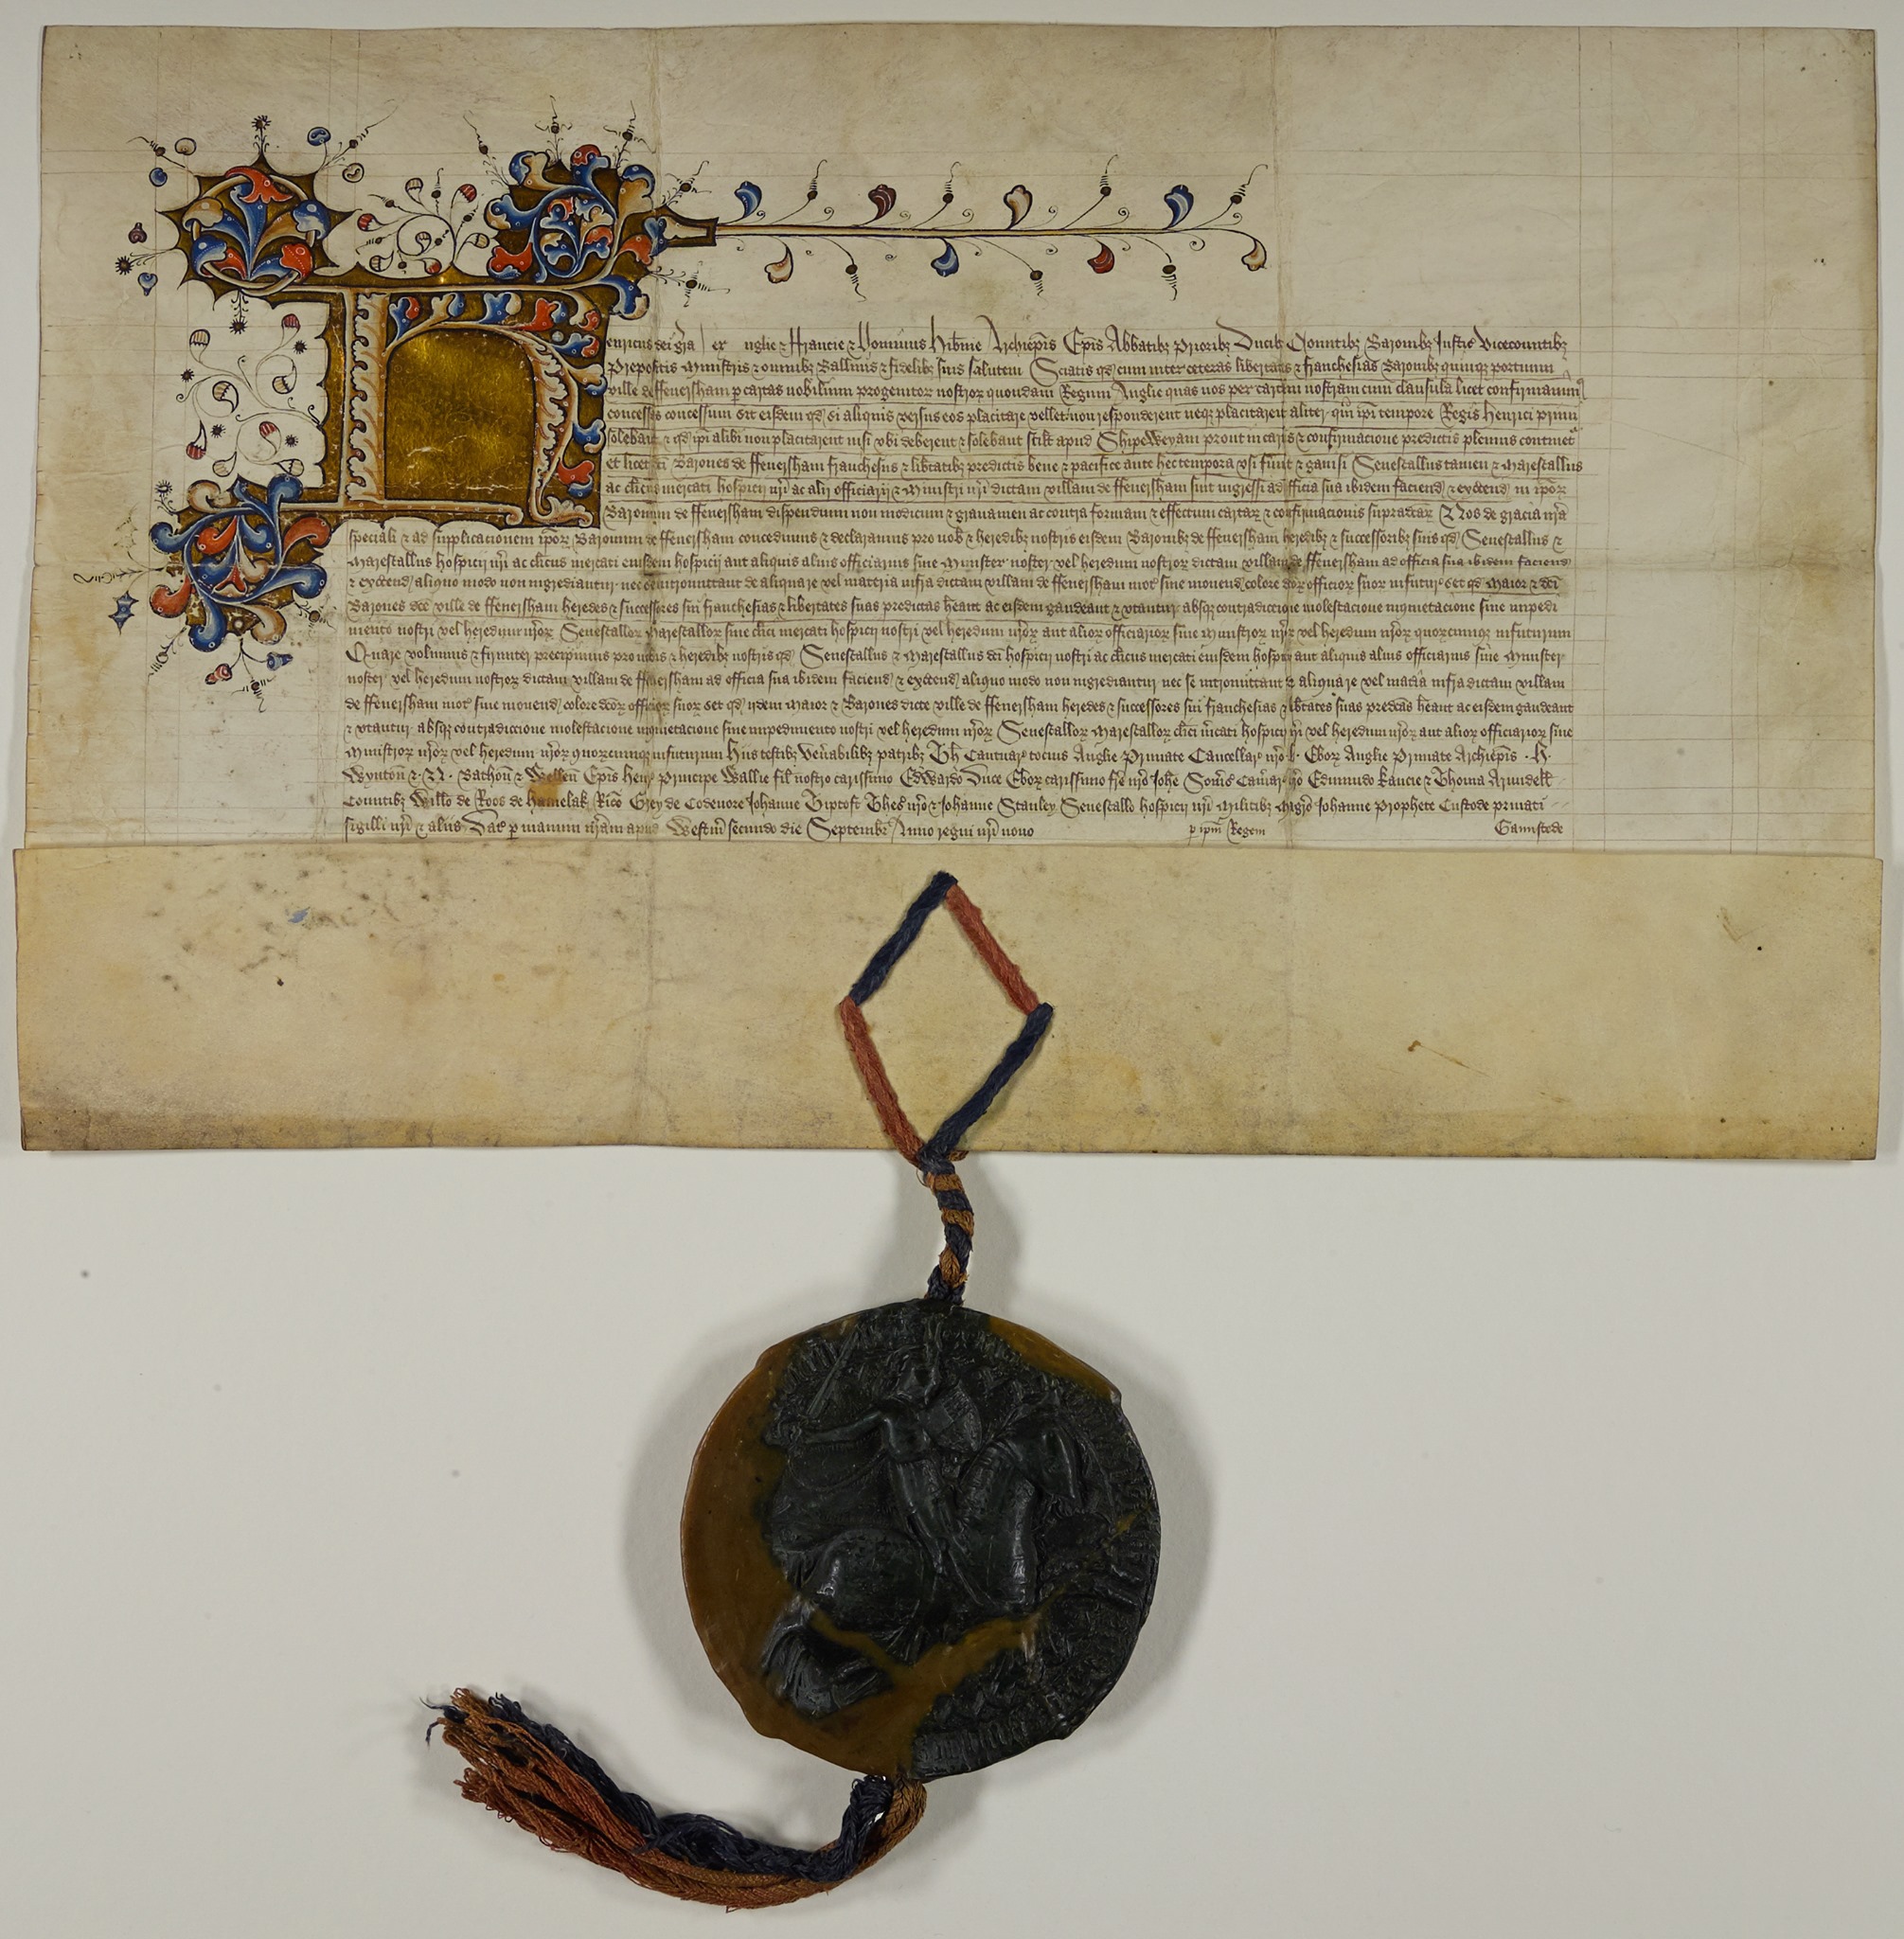 Henricus dei gra Rex Anglie & Francie & Dominus Hibnie Archiepis Epis Abbatibz Prioribz Ducibz Comitibz Baronibz Justic Vicecomitibz
Prepositis Ministris & omnibz Ballivis & fidelibz suis saltem Sciatis qd cum inter ceteras libertates & franchesias Baronibz quinqz portuum
ville de ffeuersham p cartas nobilium progenitor nostror quondam Regum Anglie quas nos per cartam nostram cum clausula licet confirmavim
concesse concessum sit eisdem qd si aliquis versus eos placitare vellet non responderent neqz placitarent aliter qm ipi tempore Regis Henrici primi
solebant & qd ipi alibi non placitarent nisi vbi deberent & solebant scilt apud Shipeweyam prout in cartis & confirmacione predictis plenius continet
et licet dci Barones de ffeuersham franchesiis & libtatibz predictis bene & pacifice ante hec tempora vsi sunt & gauisi Senescallus tamen & Marescallus
ac clicus mercati hospicij nri ac alij officiarij & Ministri nri dictam villam de ffeuersham sint ingressi ad officia sua ibidem faciend & excend in ipor
Baronum de ffeuersham dispendium non modicum & grauamen ac contra formam & effectum cartar & confirmacionis supradcar Nos de gracia nra
speciali & ad supplicacionem ipor Baronum de ffeuersham concedimus & declaramus pro nob & heredibz nostris eisdem Baronibz de ffeuersham heredibz & successoribz suis qd Senescallus &
Marescallus hospicij nri ac clicus mercati eiusdem hospicij aut aliquis alius officiarius siue Minister noster vel heredum nostror dictam villam de ffeuersham ad officia sua ibidem faciend
& excend aliquo modo non ingrediantur nec se intromittant de aliqua re vel materia infra dictam villam de ffeuersham mot siue mouend colore dcor officior suor infutur set qd Maior & dci
Barones dce ville de ffeuersham heredes & successores sui franchesias & libertates suas predictas heant ac eisdem gaudeant & vtantur absqz contradiccione molestacione inquietacione siue impedi
mento nostri vel heredum nror Senescallor Marescallor siue clici mercati hospicij nostri vel heredum nror aut alior officiarior siue Ministror nror vel heredum nror quorcumqz infuturum
Quare volumus & firmiter precipimus pro nobis & heredibz nostris qd Senescallus & Marescallus dci hospicij nostri ac clicus mercati eiusdem hospicij aut aliquis alius officiarius siue Minister
noster vel heredum nostror dictam villam de ffeuersham ad officia sua ibidem faciend & excend aliquo modo non ingrediantur nec se intromittant de aliqua re vel matia infra dictam villam
de ffeuersham mot siue mouend colore dcor officior suor set qd ijdem Maior & Barones dicte ville de ffeuersham heredes & successores sui franchesias & libtates suas predcas heant ac eisdem gaudeant
& vtantur absqz contradiccione molestacione inquietacione siue impedimento nostri vel heredum nror Senescallor Marescallor clici mcati hospicij nri vel heredum nror aut alior officiarior siue
Ministror nror vel heredum nror quorcumqz infuturum Hijs testibz Venabilibz patribz Th Cantuar tocius Anglie Primate Cancellar nro H Ebor Anglie Primate Archiepis H
Wynton & N Bathon & Wellen Epis Henr Principe Wallie fil nostro carissimo Edwardo Duce Ebor carissimo fre nro Johe Soms Camar nro Edmundo Kancie & Thoma Arundell
Comitibz Willo de Roos de Hamelak Rico Grey de Codenore Johanne Tiptoft Thes nro & Johanne Stanley Senescallo hospicij nri Militibz Magro Johanne Prophete Custode priuati
sigilli nri & alijs Dat p manum nram apud Westm secundo die Septembr Anno regni nri nono p ipm Regem Gaunstede